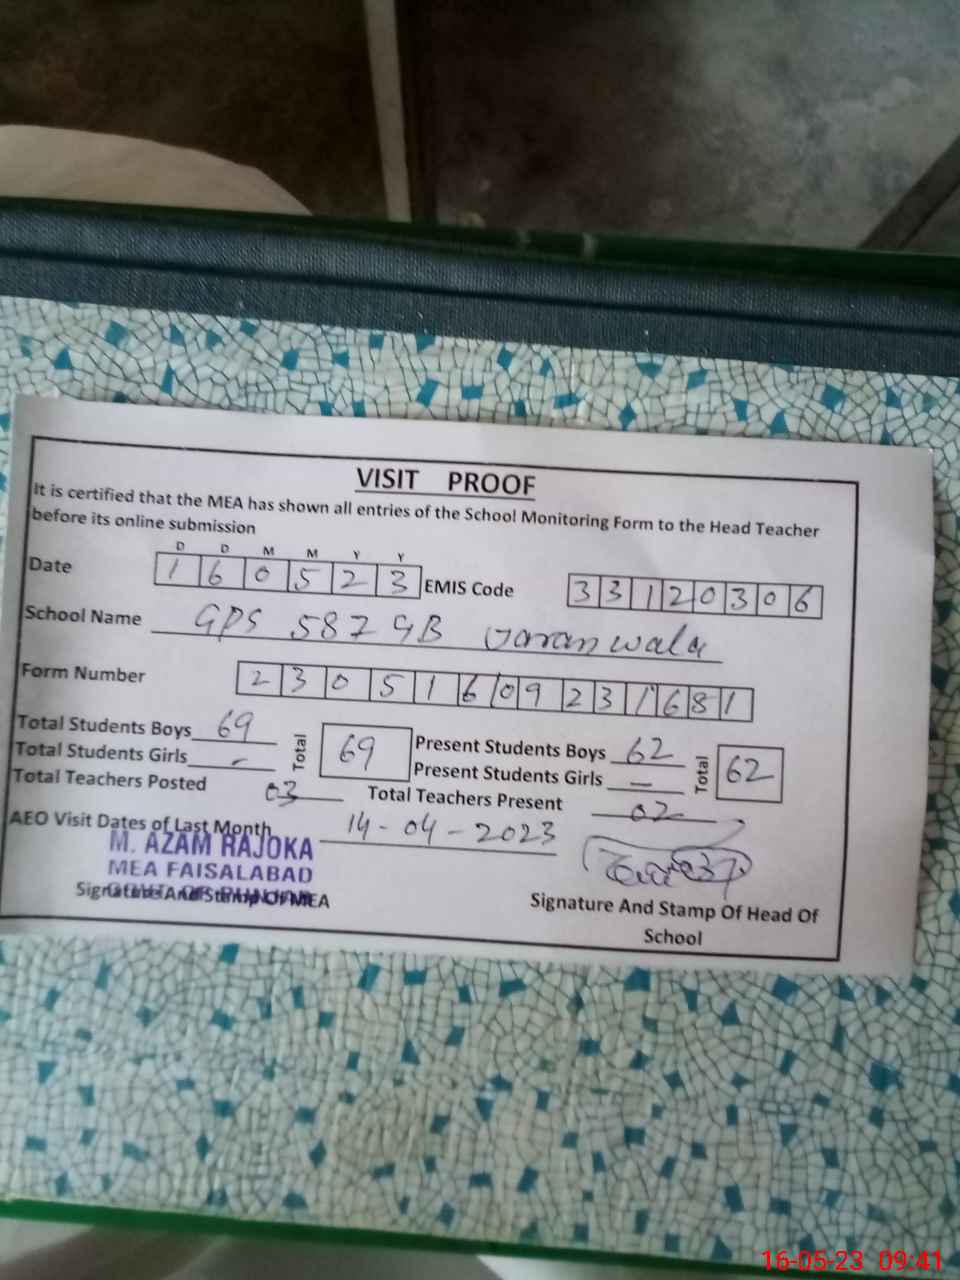 VISIT PROOF
It is certified that the MEA has shown all entries of the School Monitoring Form to the Head Teacher
before its online submission
D D M M Y Y
Date 1 6 0 5 2 3 EMIS Code 3 3 1 2 0 3 0 6
School Name GPS 587 GB Jaranwala
Form Number 2 3 0 5 1 6 0 9 2 3 1 6 8 1
Total Students Boys 69 Total 69 Present Students Boys 62 Total 62
Total Students Girls - Present Students Girls -
Total Teachers Posted 03 Total Teachers Present 02
AEO Visit Dates of Last Month 14-04-2023
M. AZAM RAJOKA
MEA FAISALABAD
Signature And Stamp Of MEA
Signature And Stamp Of Head Of
School
16-05-23 09:41